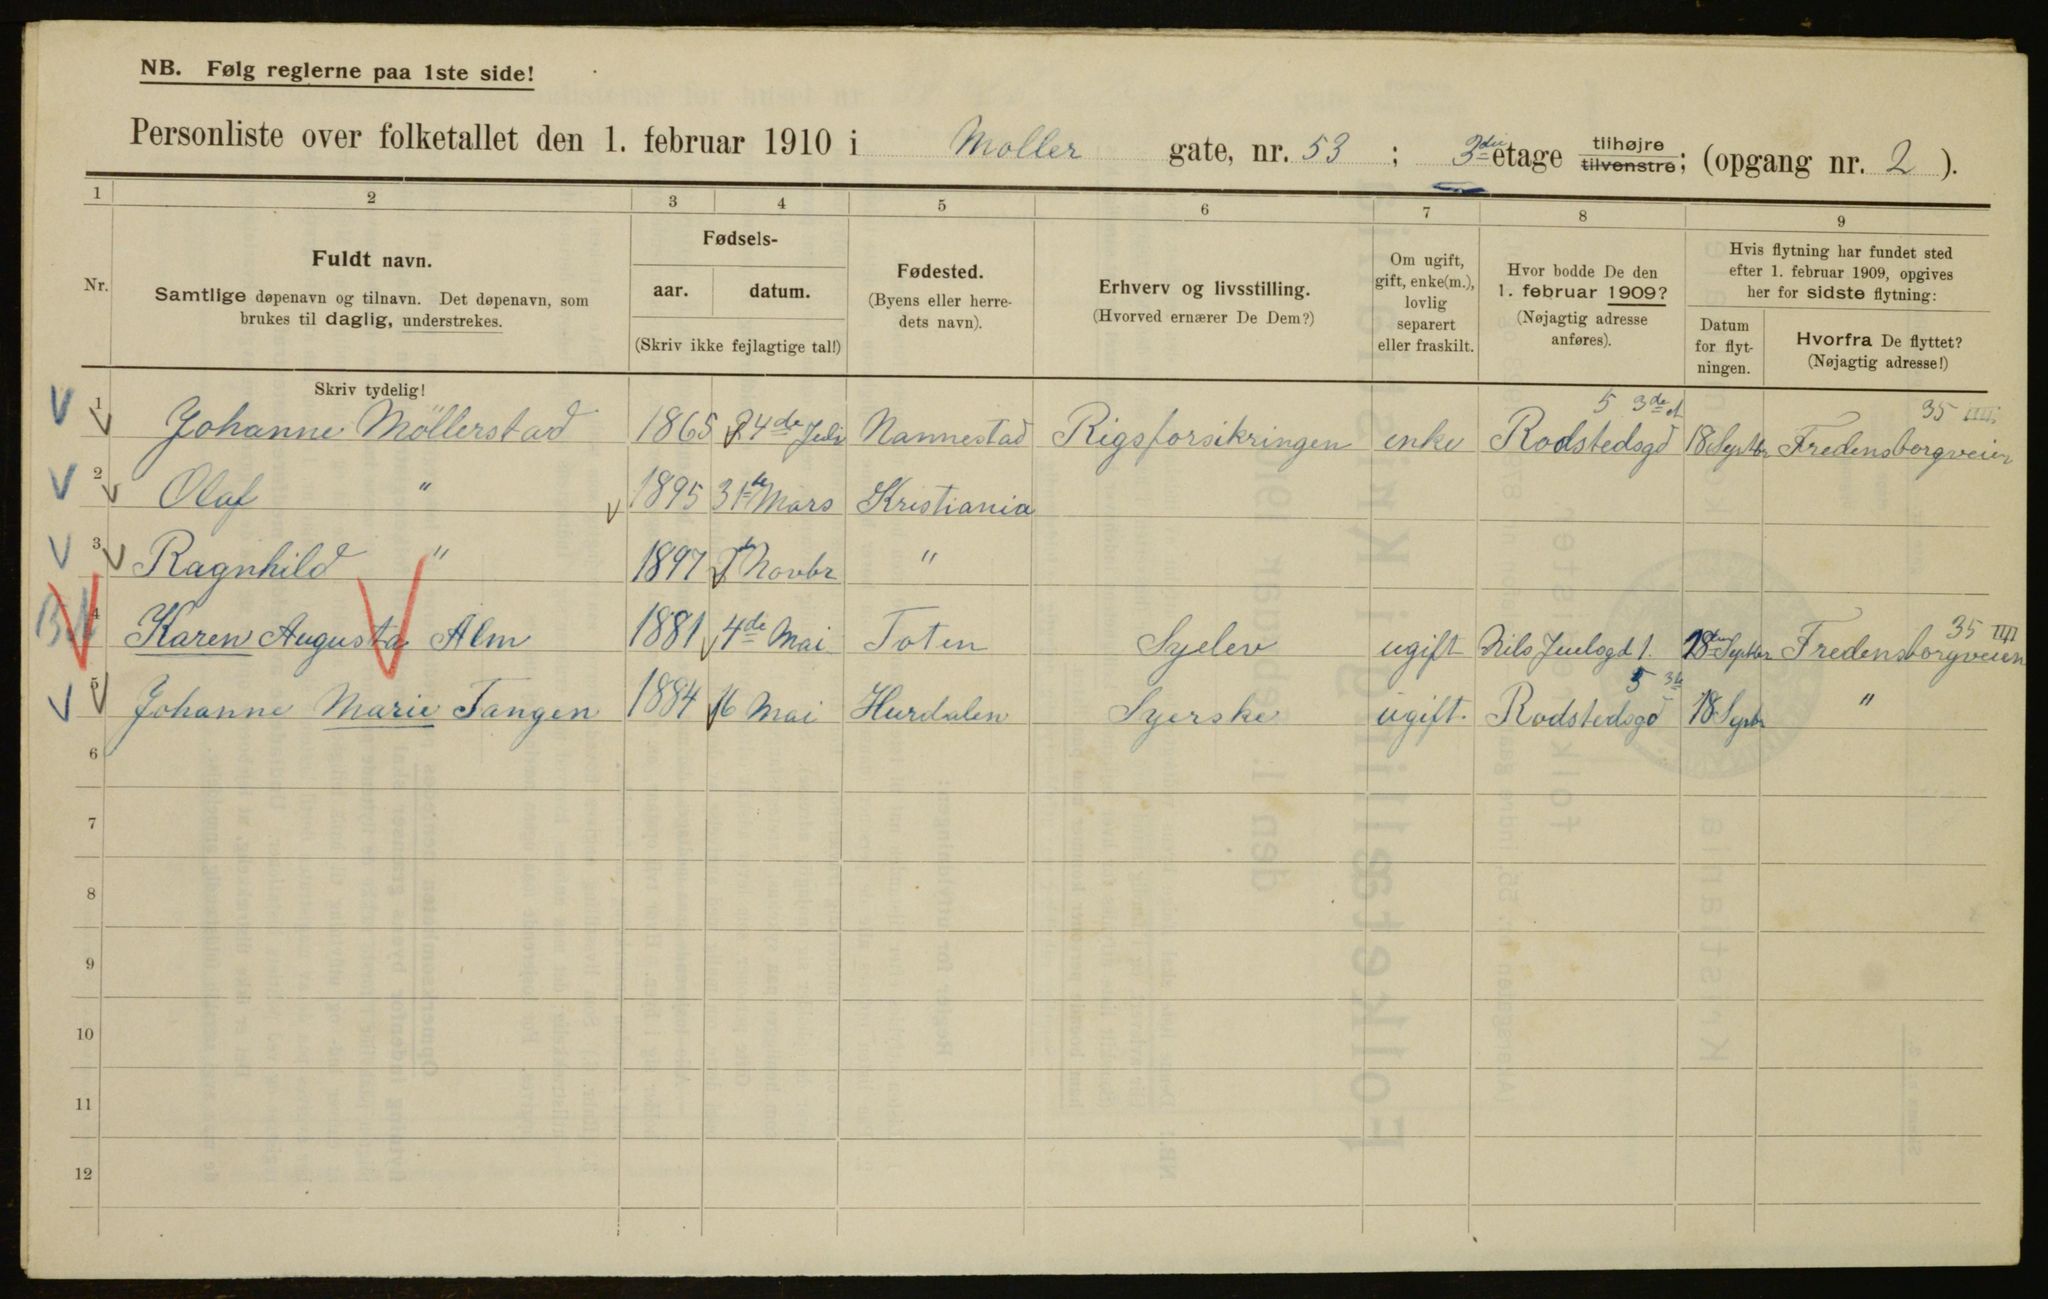 NB. Følg reglerne paa 1ste side!
Personliste over folketallet den 1. februar 1910 i Moller gate, nr. 53 ; 3die etage tilhøjre tilvenstre; (opgang nr. 2 ).
1 2 3 4 5 6 7 8 9
Nr.
Fuldt navn.
Samtlige døpenavn og tilnavn. Det døpenavn, som
brukes til daglig, understrekes.
Fødsels-
aar. datum.
(Skriv ikke fejlagtige tal!)
Fødested.
(Byens eller herre-
dets navn).
Erhverv og livsstilling.
(Hvorved ernærer De Dem?)
Om ugift,
gift, enke(m.),
lovlig
separert
eller fraskilt.
Hvor bodde De den
1. februar 1909?
(Nøjagtig adresse
anføres).
Hvis flytning har fundet sted
efter 1. februar 1909, opgives
her for sidste flytning:
Datum
for flyt-
ningen.
Hvorfra De flyttet?
(Nøjagtig adresse!)
Skriv tydelig!
1 Johanne Möllerstad 1865 24de Nannestad Rigsforsikringen enke Rodstedsgd 5 3de 18 Septbr Fredensborgveien 35 IIII
2 Olaf " 1895 31te Mars Kristiania
3 Ragnhild " 1897 Novbr "
4 Karen Augusta Alm 1881 4de Mai Toten Syelev ugift Nils Juelsgd 1. 18 Septbr Fredensborgveien 35 IIII
5 Johanne Marie Tangen 1884 16 Mai Hurdalen Syerske ugift. Rodstedsgd 5 3de 18 Septbr "
6
7
8
9
10
11
12